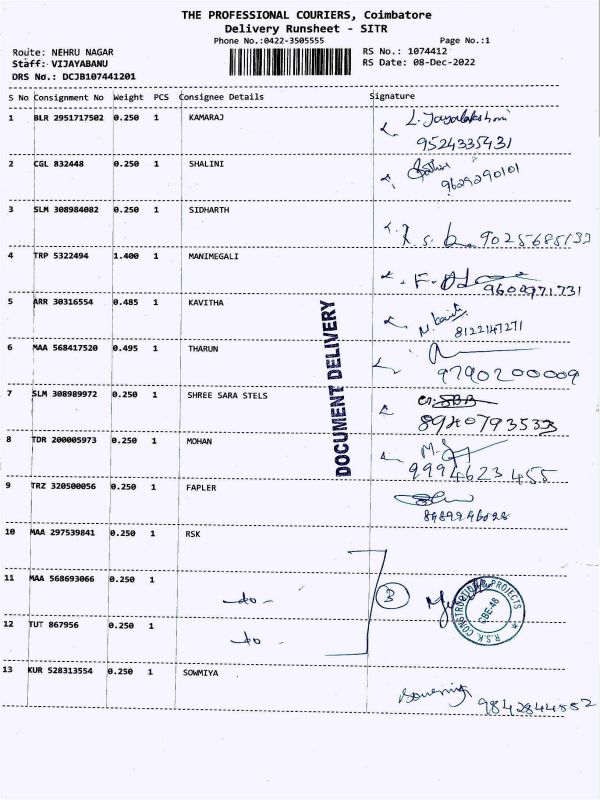 THE PROFESSIONAL COURIERS, Coimbatore
Delivery Runsheet - SITR
Phone No.:0422-3505555 Page No.:1
Route: NEHRU NAGAR RS No.: 1074412
Staff: VIJAYABANU RS Date: 08-Dec-2022
DRS No.: DCJB107441201
S No Consignment No Weight PCS Consignee Details Signature
1 BLR 2951717502 0.250 1 KAMARAJ L. Jayalakshmi
9524335431
2 CGL 832448 0.250 1 SHALINI
9629290101
3 SLM 308984082 0.250 1 SIDHARTH
4 TRP 5322494 1.400 1 MANIMEGALI
9600971731
5 ARR 30316554 0.485 1 KAVITHA
8122147271
6 MAA 568417520 0.495 1 THARUN
9790200009
7 SLM 308989972 0.250 1 SHREE SARA STELS
8940793533
8 TDR 200005973 0.250 1 MOHAN
9994623455
9 TRZ 320500056 0.250 1 FAPLER
10 MAA 297539841 0.250 1 RSK
11 MAA 568693066 0.250 1 -do- 3
12 TUT 867956 0.250 1 -do-
13 KUR 528313554 0.250 1 SOWMIYA Sowmiya
9842844552
DOCUMENT DELIVERY
R.S.K. CONSTRUCTION & PROJECTS
CBE-48